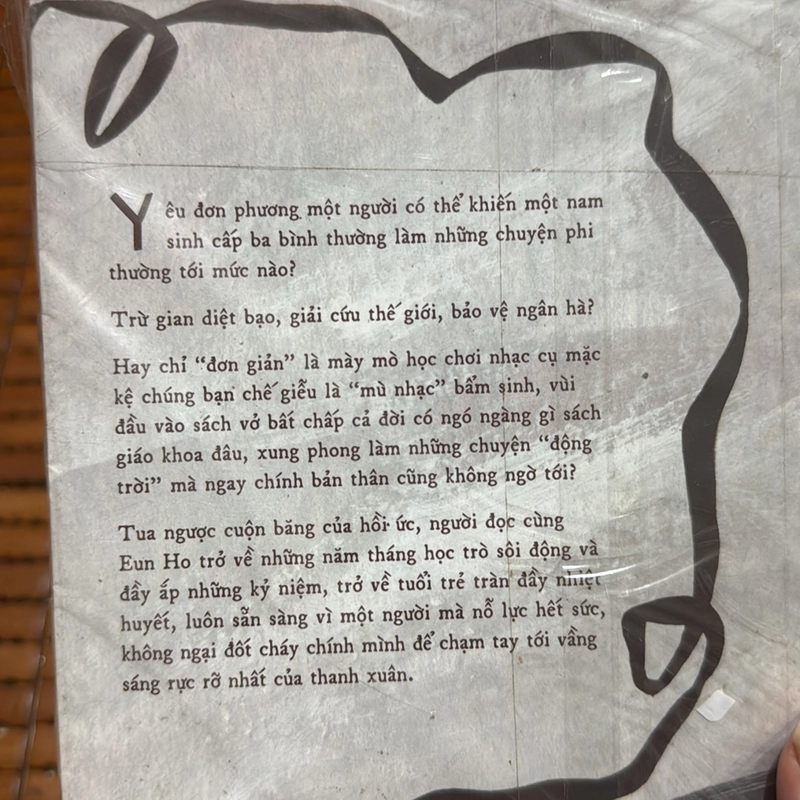 Yêu đơn phương một người có thể khiến một nam
sinh cấp ba bình thường làm những chuyện phi
thường tới mức nào?
Trừ gian diệt bạo, giải cứu thế giới, bảo vệ ngân hà?
Hay chỉ “đơn giản” là mày mò học chơi nhạc cụ mặc
kệ chúng bạn chế giễu là “mù nhạc” bẩm sinh, vùi
đầu vào sách vở bất chấp cả đời có ngó ngàng gì sách
giáo khoa đâu, xung phong làm những chuyện “động
trời” mà ngay chính bản thân cũng không ngờ tới?
Tua ngược cuộn băng của hồi ức, người đọc cùng
Eun Ho trở về những năm tháng học trò sôi động và
đầy ắp những kỷ niệm, trở về tuổi trẻ tràn đầy nhiệt
huyết, luôn sẵn sàng vì một người mà nỗ lực hết sức,
không ngại đốt cháy chính mình để chạm tay tới vầng
sáng rực rỡ nhất của thanh xuân.